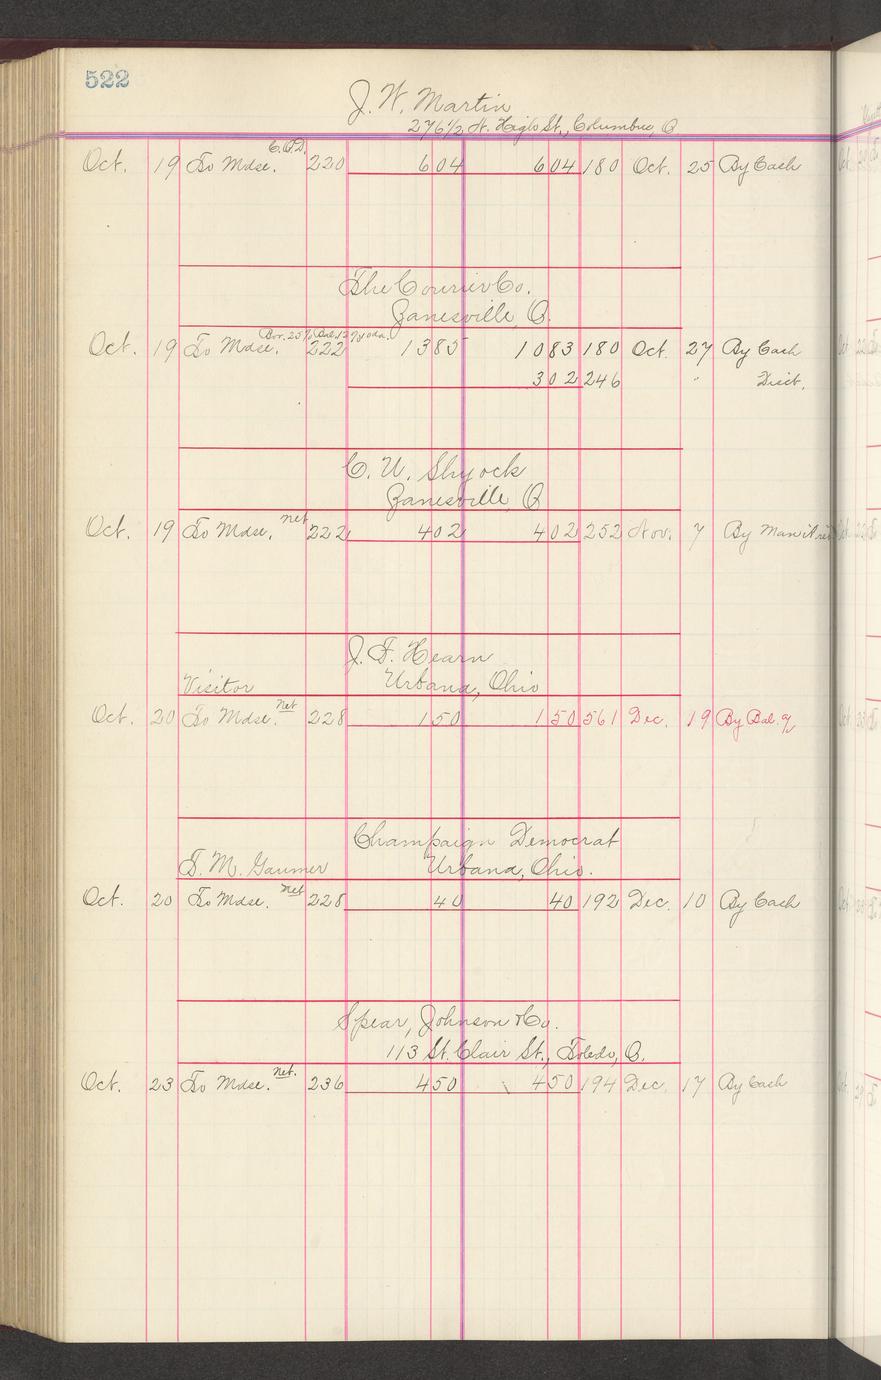 522
J. W. Martin
276 1/2 N. High St., Columbus, O
C.O.D.
Oct. 19 To Mdse. 220 604 604 180 Oct. 25 By Cash
The Courier Co.
Zanesville, O.
Oct. 19 To Mdse. 222 1385 1083 180 Oct. 27 By Cash
302 246 " Disct.
C. U. Shyock
Zanesville, O
Oct. 19 To Mdse. net 222 402 402 252 Nov. 7 By
J. F. Hearn
Visitor Urbana, Ohio
Oct. 20 To Mdse. net 228 150 150 561 Dec. 19 By Bal. %
Champaign Democrat
T. M. Gaumer Urbana, Ohio.
Oct. 20 To Mdse. net 228 40 40 192 Dec. 10 By Cash
Spear, Johnson & Co.
113 St. Clair St., Toledo, O.
Oct. 23 To Mdse. net. 236 450 450 194 Dec. 17 By Cash